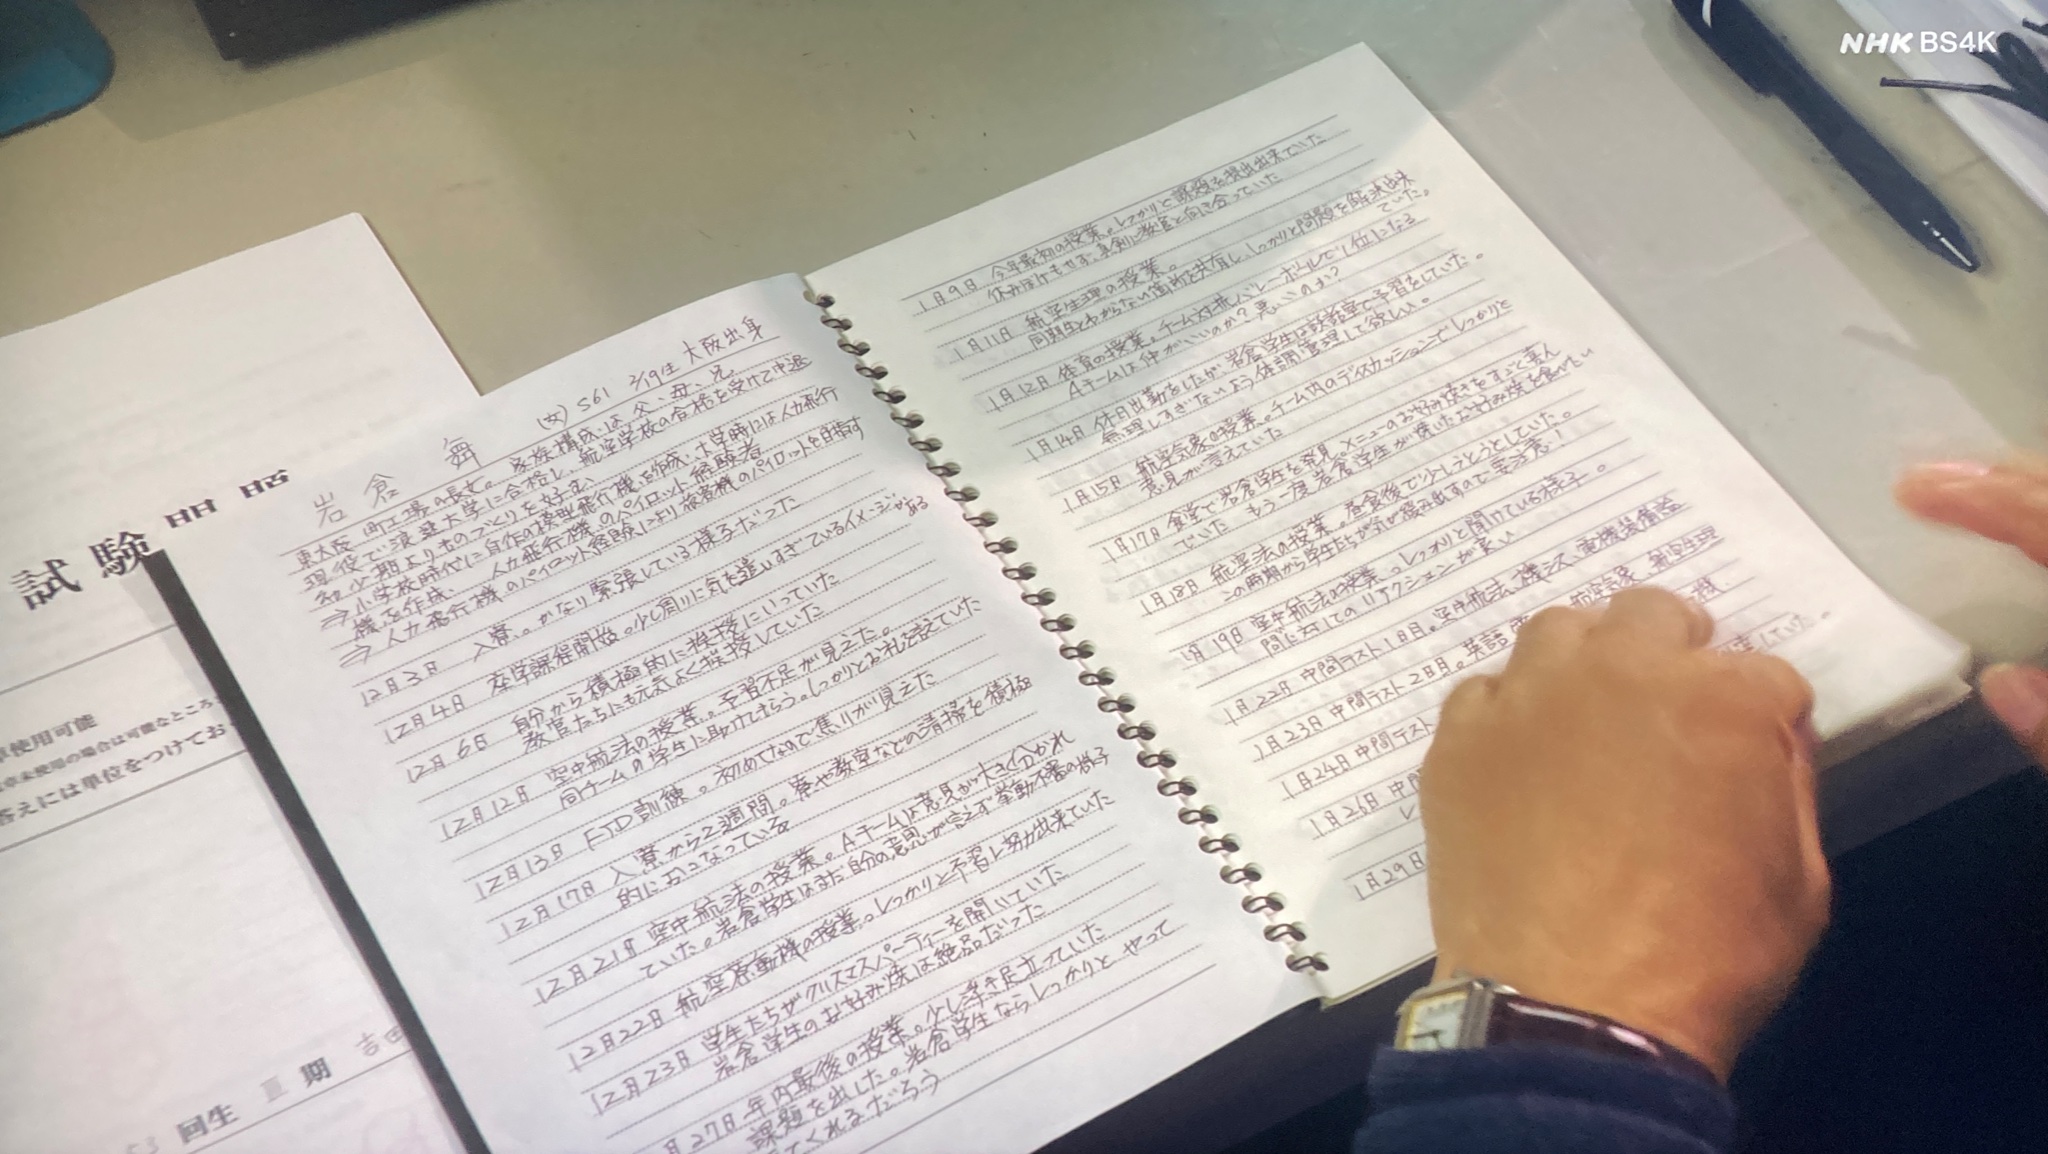 NHK BS4K
試験問題
使用可能
章未使用の場合は可能なところ
答えには単位をつけてお
53 回生 Ⅲ 期 吉田
岩倉 舞 (女) S61 2/19生 大阪出身
東大阪 町工場の長女。家族構成は父、母、兄
現役で浪速大学に合格し、航空学校の合格を受けて中退
幼少期よりものづくりを好む、
⇒小学校時代に自作の模型飛行機を作成、大学時には人力飛行
機を作成。人力飛行機のパイロット経験者
⇒人力飛行機のパイロット経験により旅客機のパイロットを目指す
12月3日 入寮。かなり緊張している様子だった
12月4日 座学課程開始。少し周りに気を遣いすぎているイメージがある
12月6日 自分から積極的に挨拶にいっていた
教官たちにも元気よく挨拶していた
12月12日 空中航法の授業。予習不足が見えた。
同チームの学生に助けてもらう。しっかりとお礼を伝えていた
12月13日 FTD訓練。初めてなので焦りが見えた
12月17日 入寮から2週間。寮や教室などの清掃を積極
的におこなっている
12月21日 空中航法の授業。Aチームは意見が大きく分かれ
ていた。岩倉学生はまだ自分の意思が言えず挙動不審の様子
12月22日 航空原動機の授業。しっかりと予習し努力出来ていた
12月23日 学生たちがクリスマスパーティーを開いていた
岩倉学生のお好み焼は絶品だった
月27日 年内最後の授業。少し浮き足立っていた
課題を出した。岩倉学生ならしっかりと やって
てくれるだろう
1月9日 今年最初の授業。しっかりと課題を提出出来ていた
休みぼけもせず、真剣に教官と向き合っていた
1月11日 航空生理の授業。
同期生とわからない箇所を共有し、しっかりと問題を解決出来
ていた。
1月12日 体育の授業。チーム対抗バレーボールで1位になる
Aチームは仲がいいのか?悪いのか?
1月14日 休日出勤をしたが、岩倉学生は談話室で予習をしていた。
無理しすぎないよう体調管理して欲しい。
1月15日 航空気象の授業。チーム内のディスカッションでしっかりと
意見が言えていた
1月17日 食堂で岩倉学生を発見。メニューのお好み焼きをすごく喜ん
でいた もう一度岩倉学生が焼いたお好み焼を食べたい
1月18日 航空法の授業。昼食後で少しうとうとしていた。
この時期から学生たちが気が緩み出すので要注意!
1月19日 空中航法の授業。しっかりと聞けている様子。
問に対してのリアクションが良い
1月22日 中間テスト1日目。空中航法、機シス、電機装備論
1月23日 中間テスト2日目。英語 航空気象 航空生理
1月24日 中間テスト
1月26日 中間
し
1月29日
していた。